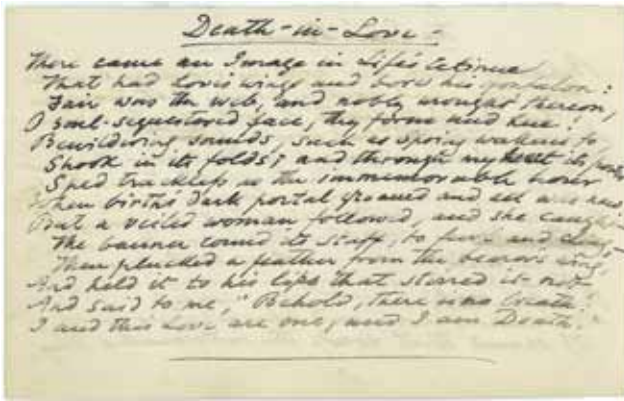 Death-in-Love -
There came an Image in Life's retinue
That had Love's wings and bore his gonfalon:
Fair was the web, and nobly wrought thereon,
O soul-sequestered face, thy form and hue!
Bewildering sounds, such as Spring wakens to,
Shook in its folds; and through my heart its power
Sped trackless as the immemorable hour
When birth's dark portal groaned and all was new.
But a veiled woman followed, and she caught
The banner round its staff, to furl and cling,-
Then plucked a feather from the bearer's wing,
And held it to his lips that stirred it not
And said to me, "Behold, there is no breath:
I and this Love are one, and I am Death."